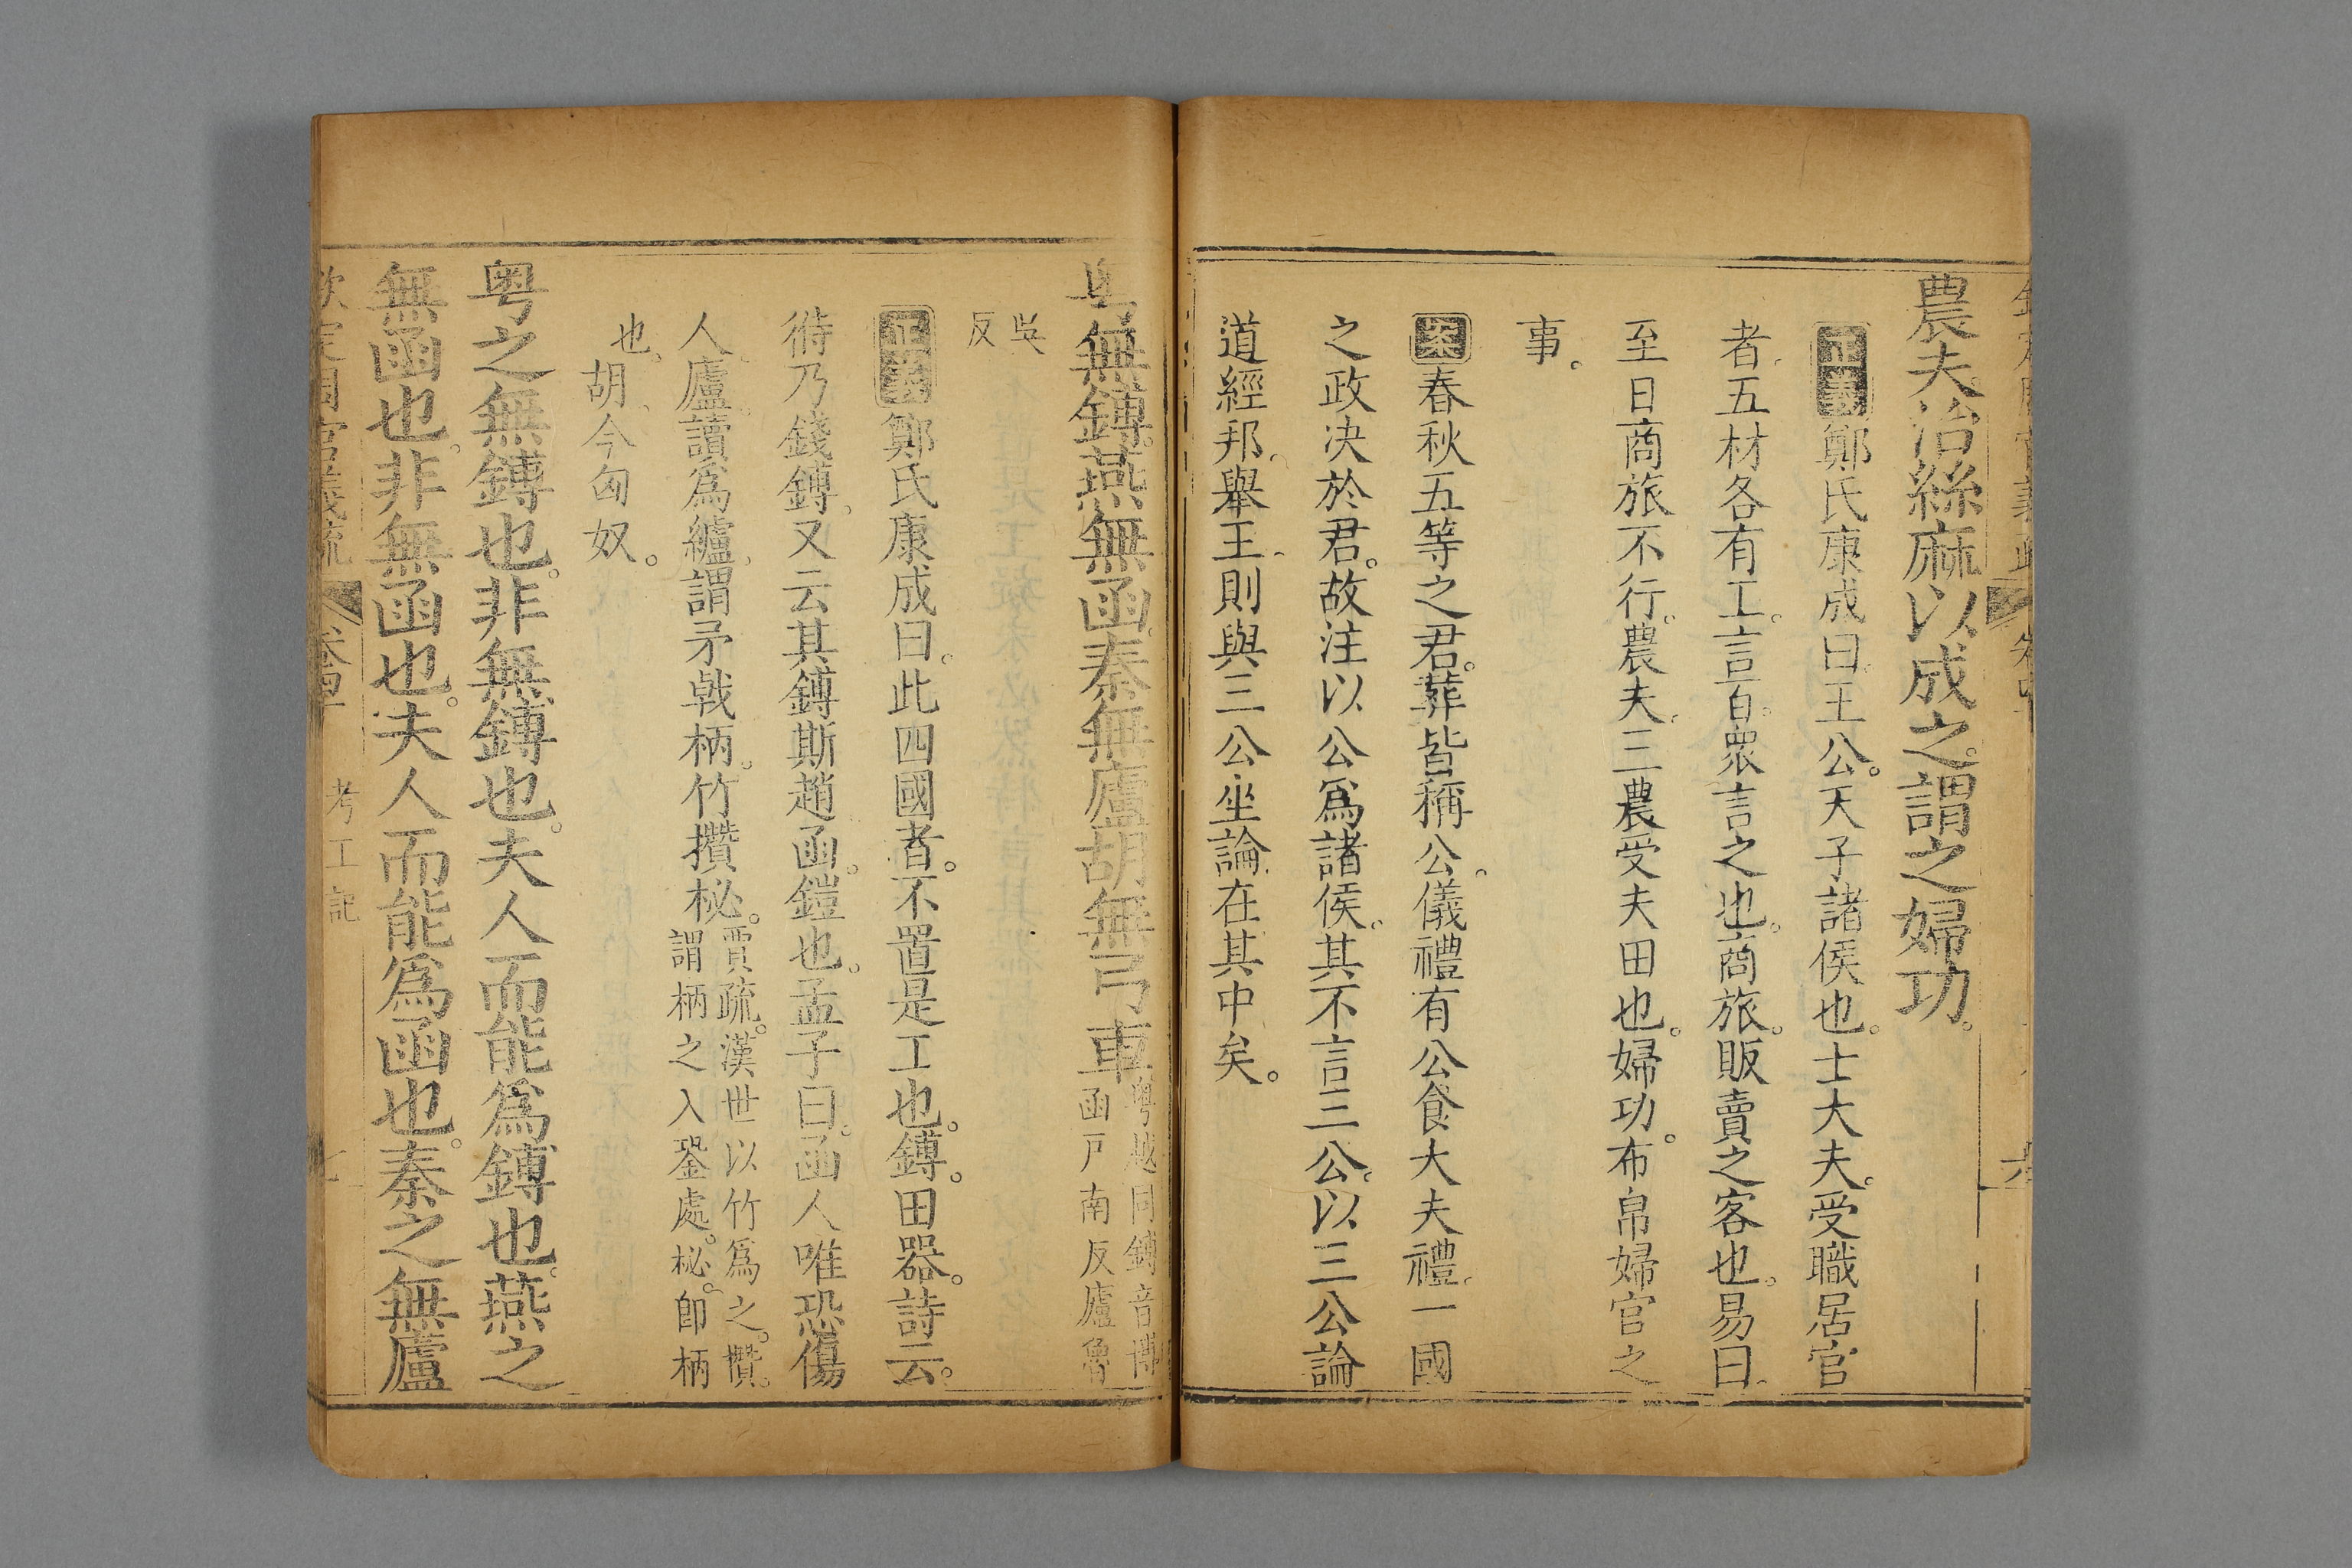 農夫治絲麻以成之謂之婦功。
正義鄭氏康成曰王公。天子諸侯也。士大夫。受職居官
者五材各有工。言百衆言之也。商旅。販賣之客也。易曰
至日商旅不行。農夫三農受夫田也。婦功。布帛婦官之
事。
案春秋五等之君。葬皆稱公。儀禮有公食大夫禮。一國
之政决於君。故注以公爲諸侯。其不言三公。以三公論
道經邦舉王則與三公坐論在其中矣。
粤無鏄。燕無函。秦無廬胡無弓車粤越同鏄音博
函戸南反廬魯
吳
反
正義鄭氏康成曰。此四國者。不置是工也。鏄。田器。詩云。
偫乃錢鏄又云其鏄斯趙函。鎧也。孟子曰。函人唯恐傷
人廬讀爲纑謂矛戟柄。竹攢柲。賈疏。漢世以竹爲之。攢。
謂柄之入銎處。柲。卽柄
也。
胡今匈奴。
粤之無鏄也。非無鏄也。夫人而能爲鏄也。燕之
無函也。非無函也。夫人而能爲函也。秦之無廬
欽定周官義疏 卷四十 考工記 七